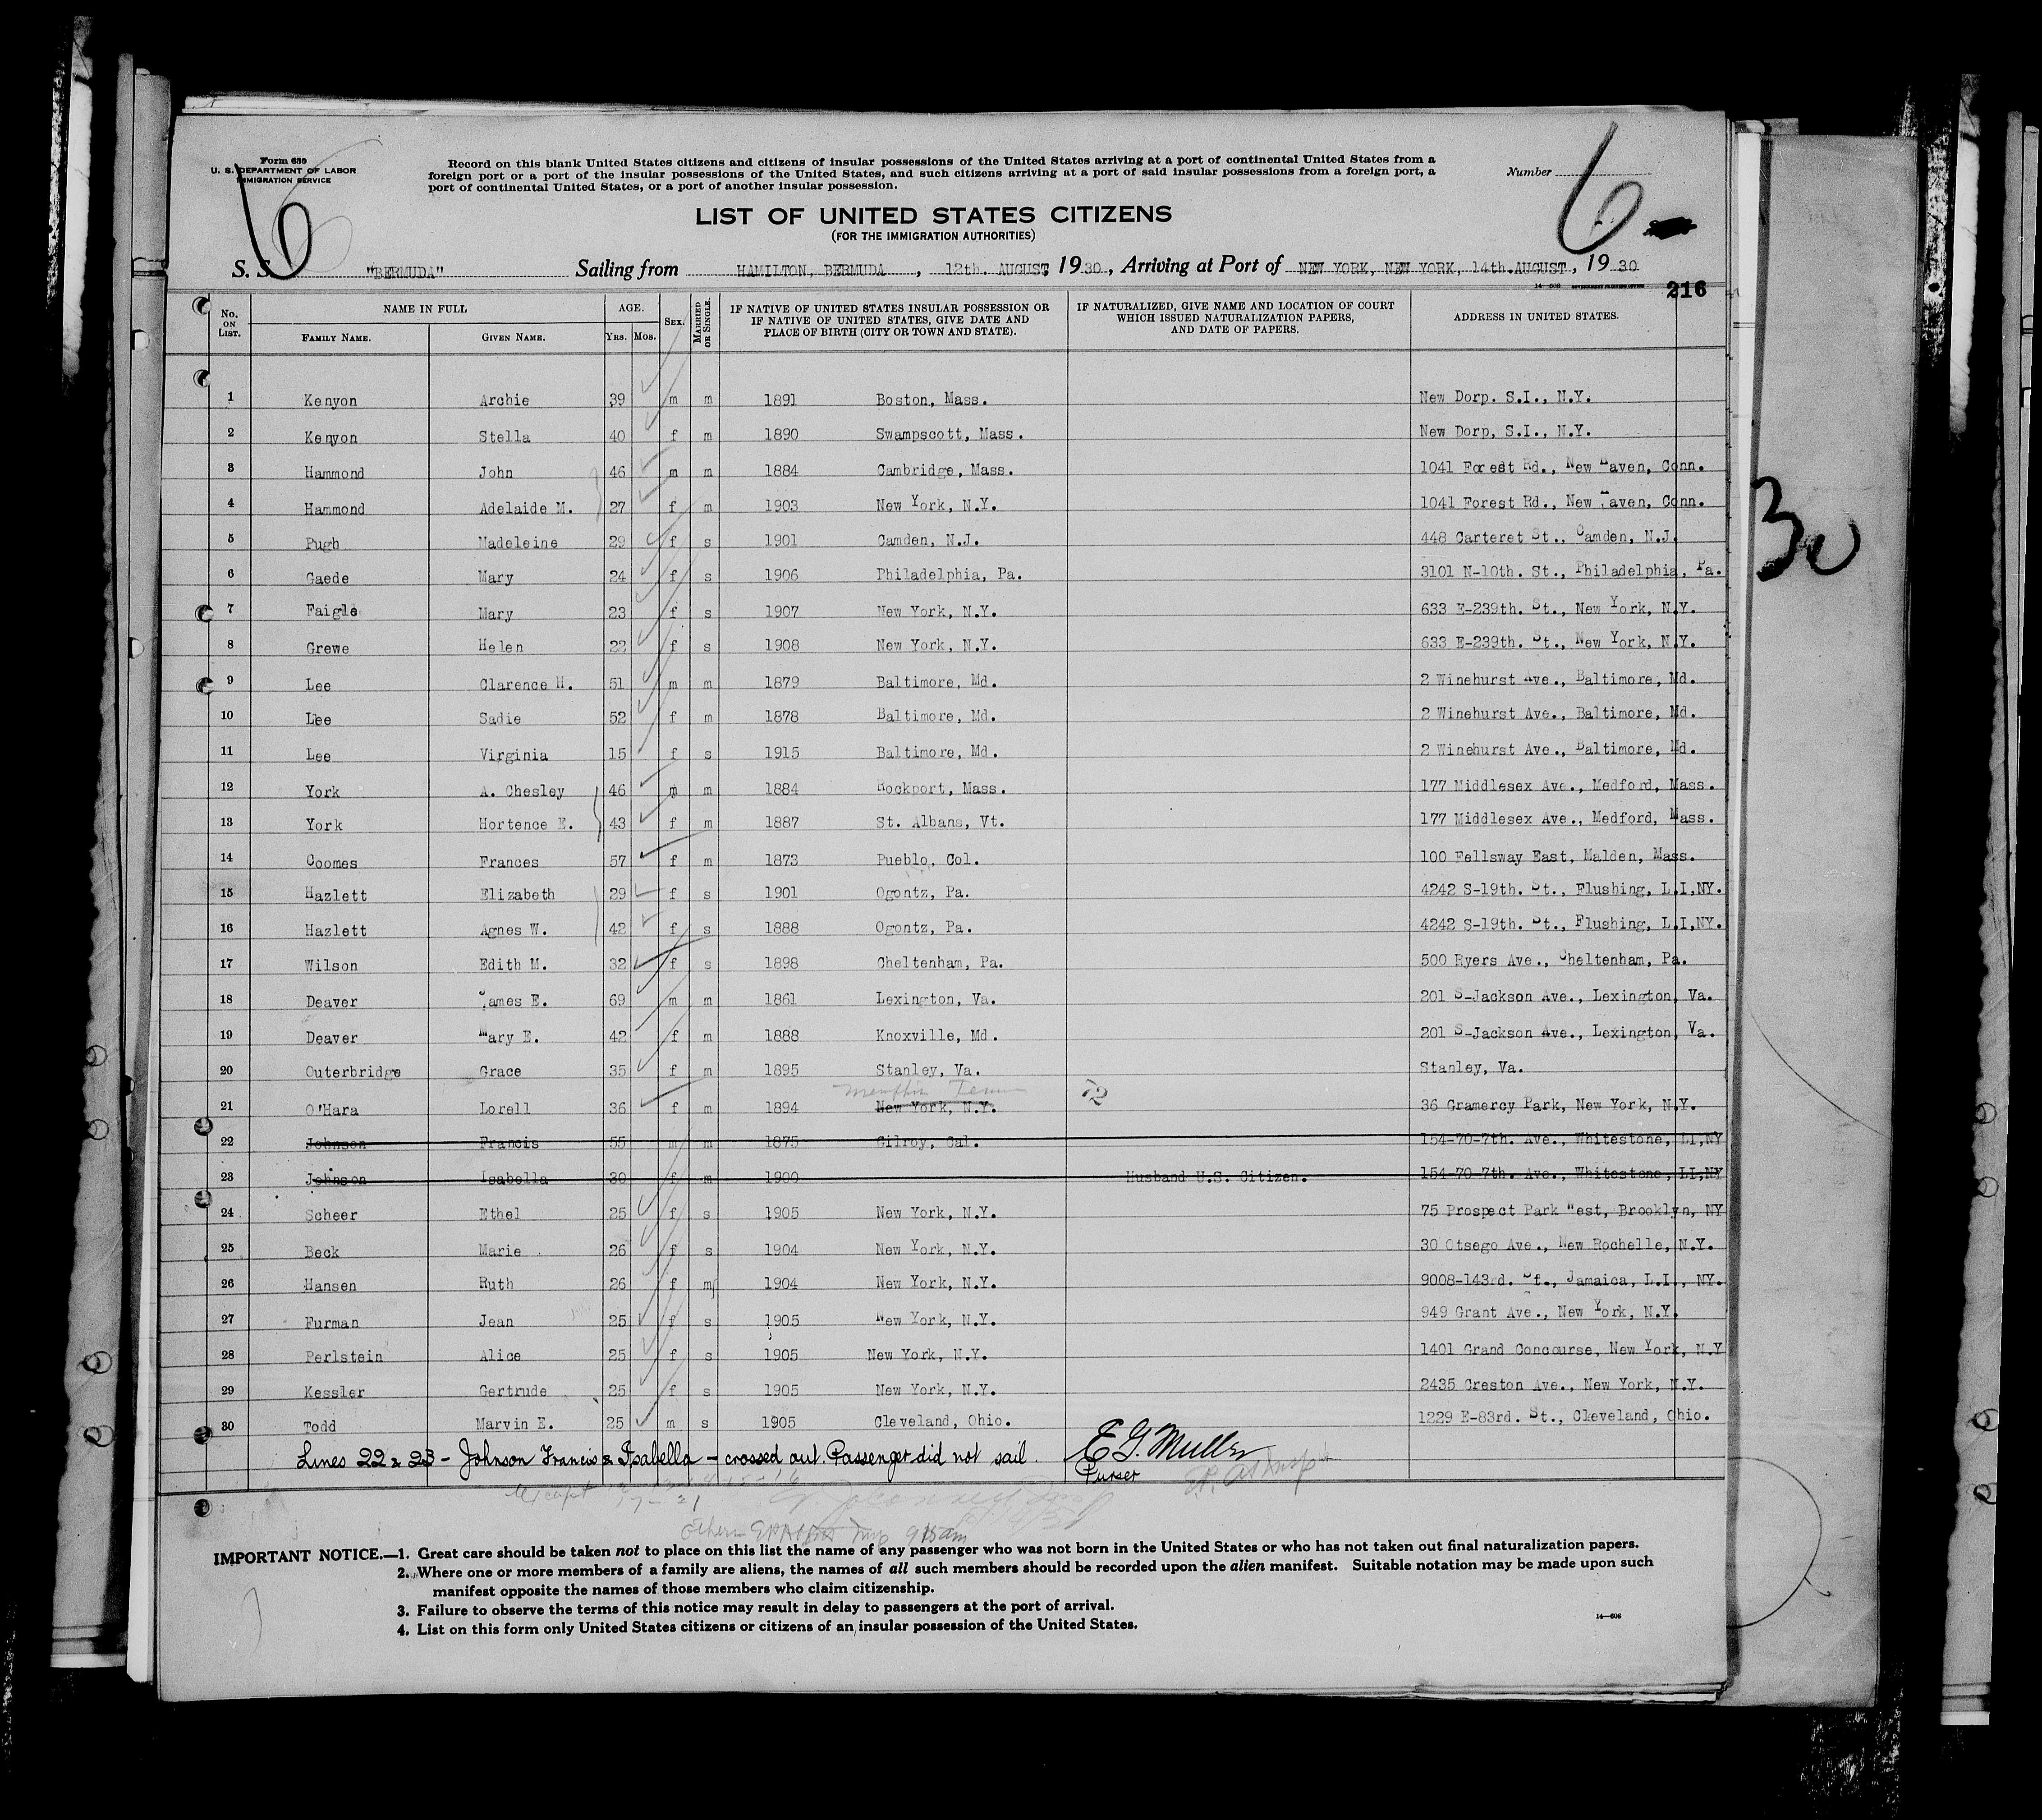 Form 630
U. S. DEPARTMENT OF LABOR
IMMIGRATION SERVICE
6
Record on this blank United States citizens and citizens of insular possessions of the United States arriving at a port of continental United States from a
foreign port or a port of the insular possessions of the United States, and such citizens arriving at a port of said insular possessions from a foreign port, a
port of continental United States, or a port of another insular possession.
Number
6
LIST OF UNITED STATES CITIZENS
(FOR THE IMMIGRATION AUTHORITIES)
S. S. "BERMUDA" Sailing from HAMILTON, BERMUDA , 12th. AUGUST, 1930, Arriving at Port of NEW YORK, NEW YORK, 14th.AUGUST, 1930
14—608 GOVERNMENT PRINTING OFFICE
216
No. ON LIST. NAME IN FULL FAMILY NAME. GIVEN NAME. AGE. YRS. MOS. SEX. MARRIED OR SINGLE. IF NATIVE OF UNITED STATES INSULAR POSSESSION OR IF NATIVE OF UNITED STATES, GIVE DATE AND PLACE OF BIRTH (CITY OR TOWN AND STATE). IF NATURALIZED, GIVE NAME AND LOCATION OF COURT WHICH ISSUED NATURALIZATION PAPERS, AND DATE OF PAPERS. ADDRESS IN UNITED STATES.
1 Kenyon Archie 39 m m 1891 Boston, Mass. New Dorp. S.I., N.Y.
2 Kenyon Stella 40 f m 1890 Swampscott, Mass. New Dorp, S.I., N.Y.
3 Hammond John 46 m m 1884 Cambridge, Mass. 1041 Forest Rd., New Haven, Conn.
4 Hammond Adelaide M. 27 f m 1903 New York, N.Y. 1041 Forest Rd., New Haven, Conn.
5 Pugh Madeleine 29 f s 1901 Camden, N.J. 448 Carteret St., Camden, N.J.
6 Gaede Mary 24 f s 1906 Philadelphia, Pa. 3101 N-10th. St., Philadelphia, Pa.
7 Faigle Mary 23 f s 1907 New York, N.Y. 633 E-239th. St., New York, N.Y.
8 Grewe Helen 22 f s 1908 New York, N.Y. 633 E-239th. St., New York, N.Y.
9 Lee Clarence H. 51 m m 1879 Baltimore, Md. 2 Winehurst Ave., Baltimore, Md.
10 Lee Sadie 52 f m 1878 Baltimore, Md. 2 Winehurst Ave., Baltimore, Md.
11 Lee Virginia 15 f s 1915 Baltimore, Md. 2 Winehurst Ave., Baltimore, Md.
12 York A. Chesley 46 m m 1884 Rockport, Mass. 177 Middlesex Ave., Medford, Mass.
13 York Hortence E. 43 f m 1887 St. Albans, Vt. 177 Middlesex Ave., Medford, Mass.
14 Coomes Frances 57 f m 1873 Pueblo, Col. 100 Fellsway East, Malden, Mass.
15 Hazlett Elizabeth 29 f s 1901 Ogontz, Pa. 4242 S-19th. St., Flushing, L.I,NY.
16 Hazlett Agnes W. 42 f s 1888 Ogontz, Pa. 4242 S-19th. St., Flushing, L.I,NY.
17 Wilson Edith M. 32 f s 1898 Cheltenham, Pa. 500 Ryers Ave., Cheltenham, Pa.
18 Deaver James E. 69 m m 1861 Lexington, Va. 201 S-Jackson Ave., Lexington, Va.
19 Deaver Mary E. 42 f m 1888 Knoxville, Md. 201 S-Jackson Ave., Lexington, Va.
20 Outerbridge Grace 35 f m 1895 Stanley, Va. Stanley, Va.
Memphis Tenn
21 O'Hara Lorell 36 f m 1894 New York, N.Y. 72 36 Gramercy Park, New York, N.Y.
22 Johnson Francis 55 m m 1875 Gilroy, Cal. 154-70-7th. Ave., Whitestone, LI,NY
23 Johnson Isabella 30 f m 1900 Husband U.S. Citizen. 154-70-7th. Ave., Whitestone, LI,NY
24 Scheer Ethel 25 f s 1905 New York, N.Y. 75 Prospect Park West, Brooklyn, NY
25 Beck Marie 26 f s 1904 New York, N.Y. 30 Otsego Ave., New Rochelle, N.Y.
26 Hansen Ruth 26 f m 1904 New York, N.Y. 9008-143rd. St., Jamaica, L.I., NY.
27 Furman Jean 25 f s 1905 New York, N.Y. 949 Grant Ave., New York, N.Y.
28 Perlstein Alice 25 f s 1905 New York, N.Y. 1401 Grand Concourse, New York, N.Y
29 Kessler Gertrude 25 f s 1905 New York, N.Y. 2435 Creston Ave., New York, N.Y.
30 Todd Marvin E. 25 m s 1905 Cleveland, Ohio. 1229 E-83rd. St., Cleveland, Ohio.
Lines 22 & 23 - Johnson Francis & Isabella - crossed out. Passenger did not sail. E G. Muller
Purser
9 15 am
30
IMPORTANT NOTICE.—1. Great care should be taken not to place on this list the name of any passenger who was not born in the United States or who has not taken out final naturalization papers.
2. Where one or more members of a family are aliens, the names of all such members should be recorded upon the alien manifest. Suitable notation may be made upon such
manifest opposite the names of those members who claim citizenship.
3. Failure to observe the terms of this notice may result in delay to passengers at the port of arrival.
4. List on this form only United States citizens or citizens of an insular possession of the United States.
14—608